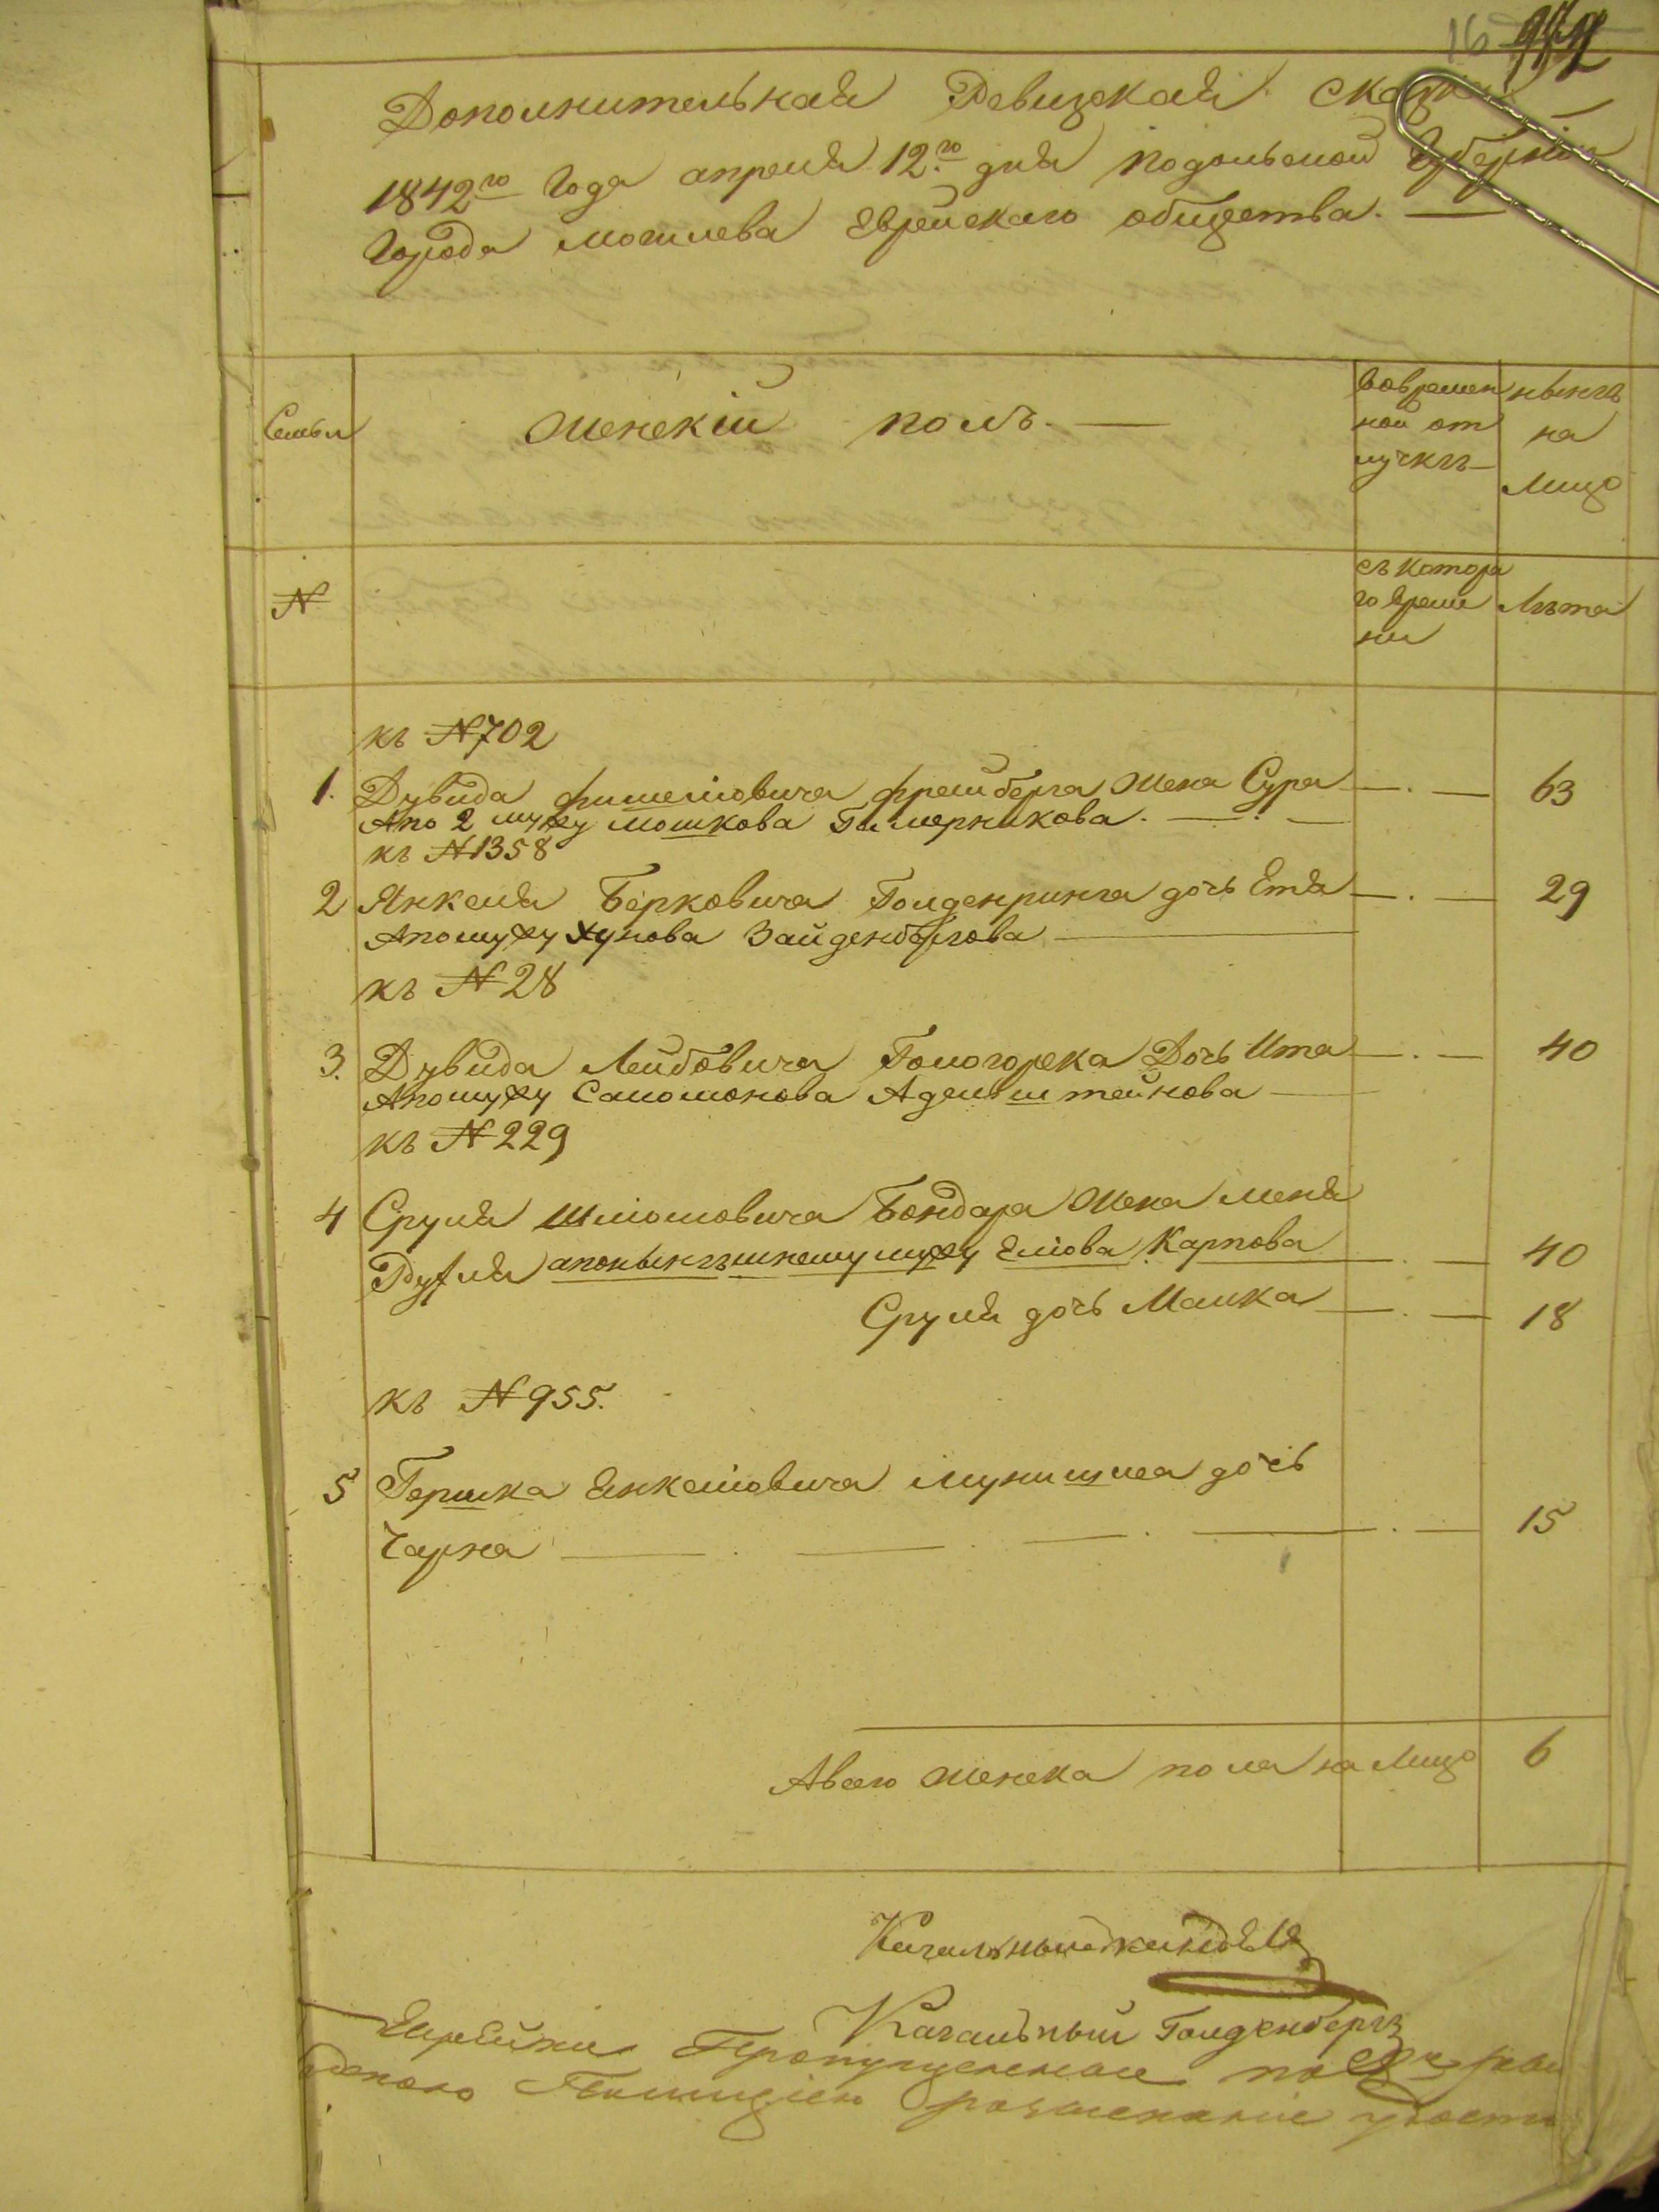 16
Дополнительная Ревизская Сказка
1842го Года апреля 12го дня Подольской Губернии
Города Могилева Еврейскаго общества. —
Семьи
Женскій полъ. —
вовремен
ной от
лучкѣ
нынѣ
на
Лицо
№
съ котора
го време
ни
Лѣта
къ № 702
1. Дувида Фишелiовича Фрейберга Жена Сура — . — 63
Апо 2 мужу Мошкова
къ № 1358
2 Янкеля Берковича Голденринга дочь Етя — . — 29
Апомужу Хунова Зайденбергова
къ № 28
3. Дувида Лейбовича Дочь Ита — . — 40
Апомужу Саломонова Адельштейнова —
къ № 229
4 Сруля Шліомовича Бондара Жена Меня
Рухля апонынѣшнему мужу Еліова Карпова — . — 40
Сруля дочь Малка — . — 18
къ № 955.
5 Гершка Янкеліовича дочь
Чарна — . — . — . — 15
Авсего женска пола на Лицо 6
Кагальный
Кагальный Голденбергъ
Еврейки Пропущенные по
Полиціею розысканіе